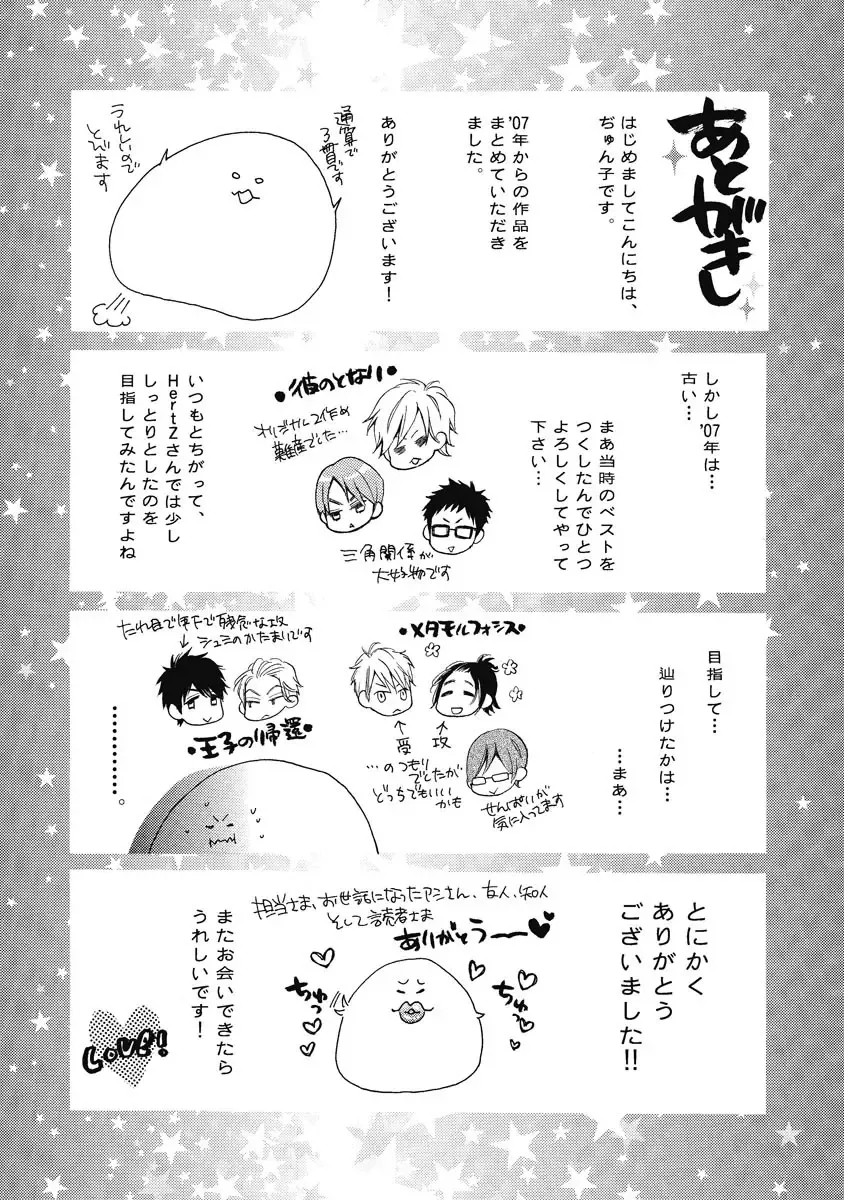 あとがき
はじめましてこんにちは、
ぢゅん子です。
'07年からの作品を
まとめていただき
ました。
ありがとうございます!
通算で
3冊目です
うれしいので
とびます
しかし'07年は…
古い…
まあ当時のベストを
つくしたんでひとつ
よろしくしてやって
下さい…
・彼のとなり・
オリジナル2作め
難産でした…
三角関係が
大好物です
いつもとちがって、
HertZさんでは少し
しっとりとしたのを
目指してみたんですよね
目指して…
辿りつけたかは…
…まあ…
・メタモルフォシス・
受
攻
…のつもり
でしたが
どっちでもいい
かも
せんぱいが
気に入ってます
たれ目で年下で強気な攻
シュミのかたまりです
・王子の帰還・
………。
とにかく
ありがとう
ございました!!
担当さま、お世話になったアシさん、友人、知人
そして読者さま
ありがとうーー♥
ちゅっ
ちゅっ
またお会いできたら
うれしいです!
LOVE!